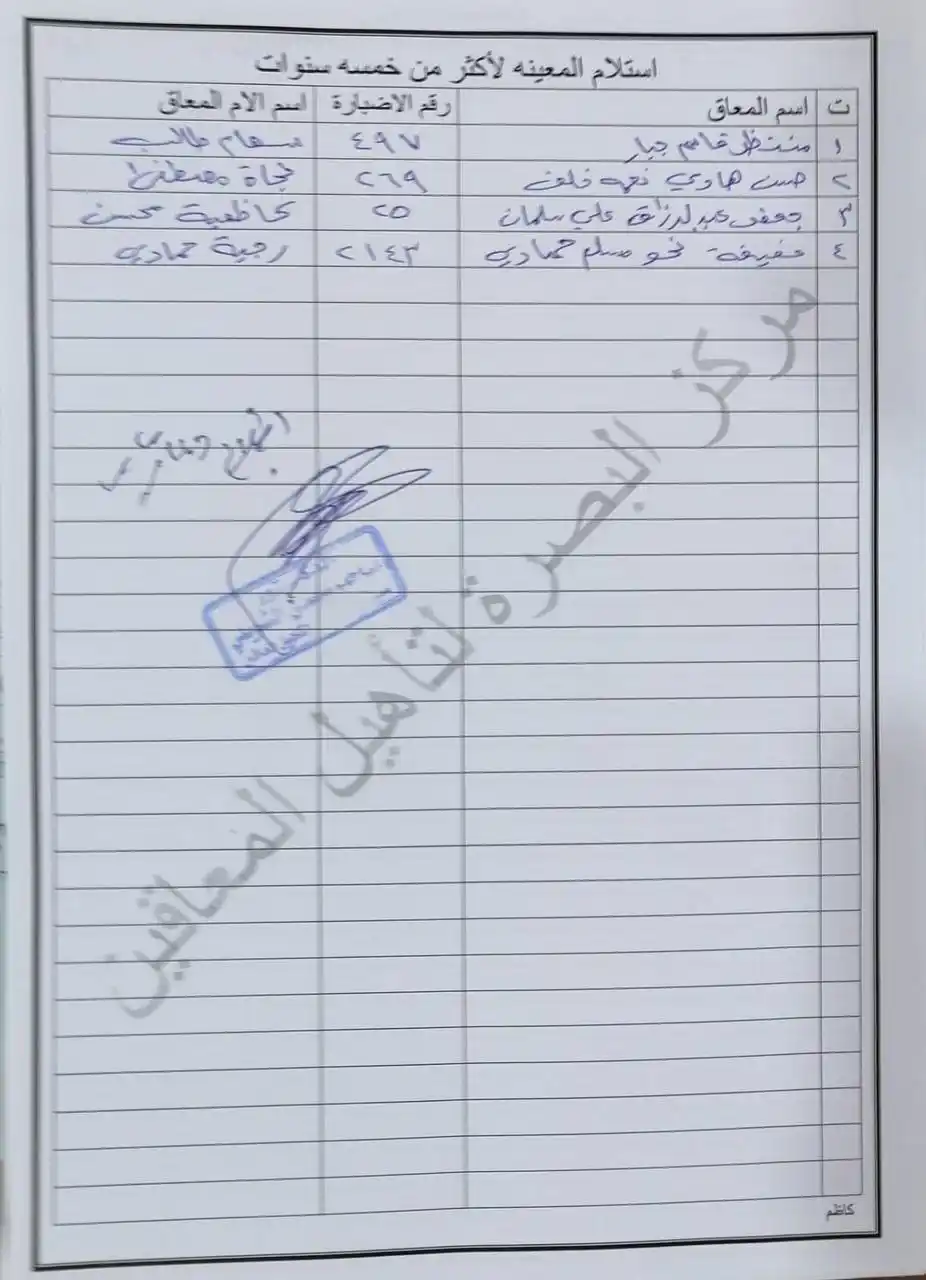 استلام المعينه لأكثر من خمسه سنوات
ت اسم المعاق رقم الاضبارة اسم الام المعاق
١ منتظر قاسم جبار ٤٩٧ سهام طالب
٢ حسن هادي نعمه خلف ٢٦٩ نجاة مصطفى
٣ جعفر عبدالرزاق علي سلمان ٢٥ كاظمية محسن
٤ مسلم حمادي ٢١٤٣ رجية حمادي
مركز البصرة لتأهيل المعاقين
كاظم